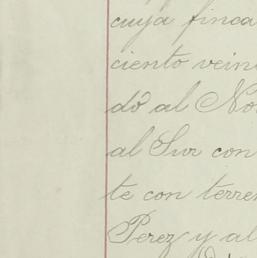 cuya finca
ciento vein
do al No
al Sur con
te con terre
Perez y al